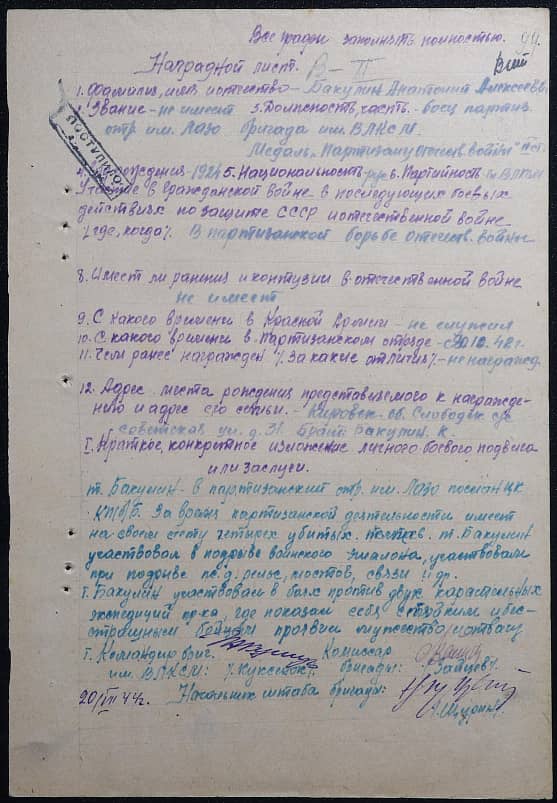 Все графы заполнять полностью.
Наградной лист.
В-II
1. Фамилия, имя, отчество - Бакулин Анатолий Алексеев
2. Звание - не имеет 3. Должность, часть - боец партиз.
отр. им. Лазо бригада им. ВЛКСМ.
Медаль „Партизану Отечеств. войны" II ст.
ПОСТУПИЛО
рождения - 1924 5. Национальность - рус 6. Партийность ВЛКСМ
Участие в гражданской войне в последующих боевых
действиях по защите СССР и отечественной войне
/где, когда/. В партизанской борьбе отечеств. войны
8. Имеет ли ранения и контузии в отечественной войне
не имеет
9. С какого времени в Красной Армии - не служил
10. С какого времени в партизанском отряде - с 10.42 г.
11. Чем ранее награжден /за какие отличия/ - не награжд.
12. Адрес места рождения представляемого к награжде-
нию и адрес его семьи. - Кировск. об. Слободск.
советская ул. д. 31. Брат: Бакулин К.
I. Краткое, конкретное изложение личного боевого подвига
или заслуги.
т. Бакулин - в партизанский отр. им. Лазо послан ЦК
КП/б/Б. За время партизанской деятельности имеет
на своем счету четырех убитых т. Бакулин
участвовал в подрыве воинского эшалона, участвовал
при подрыве ж.д. рельс, мостов, связи и др.
т. Бакулин участвовал в боях против двух карательных
экспедиций пр-ка, где показал себя стойким и бес-
страшным бойцом проявил мужество и отвагу
т. Командир бриг. Комиссар
им. ВЛКСМ: бригады: /Зайцев/
20/VII 44 г. Начальник штаба бригады: